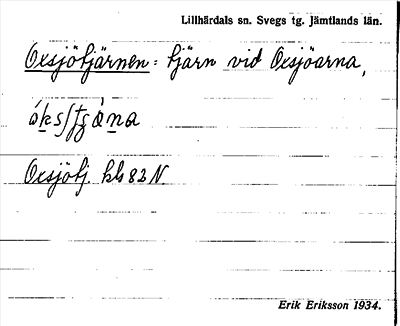 Lillhärdals sn. Svegs tg. Jämtlands län.
Oxsjötjärnen: tjärn vid Oxsjöarna,
Oxsjötj. kbl 82 N.
Erik Eriksson 1934.